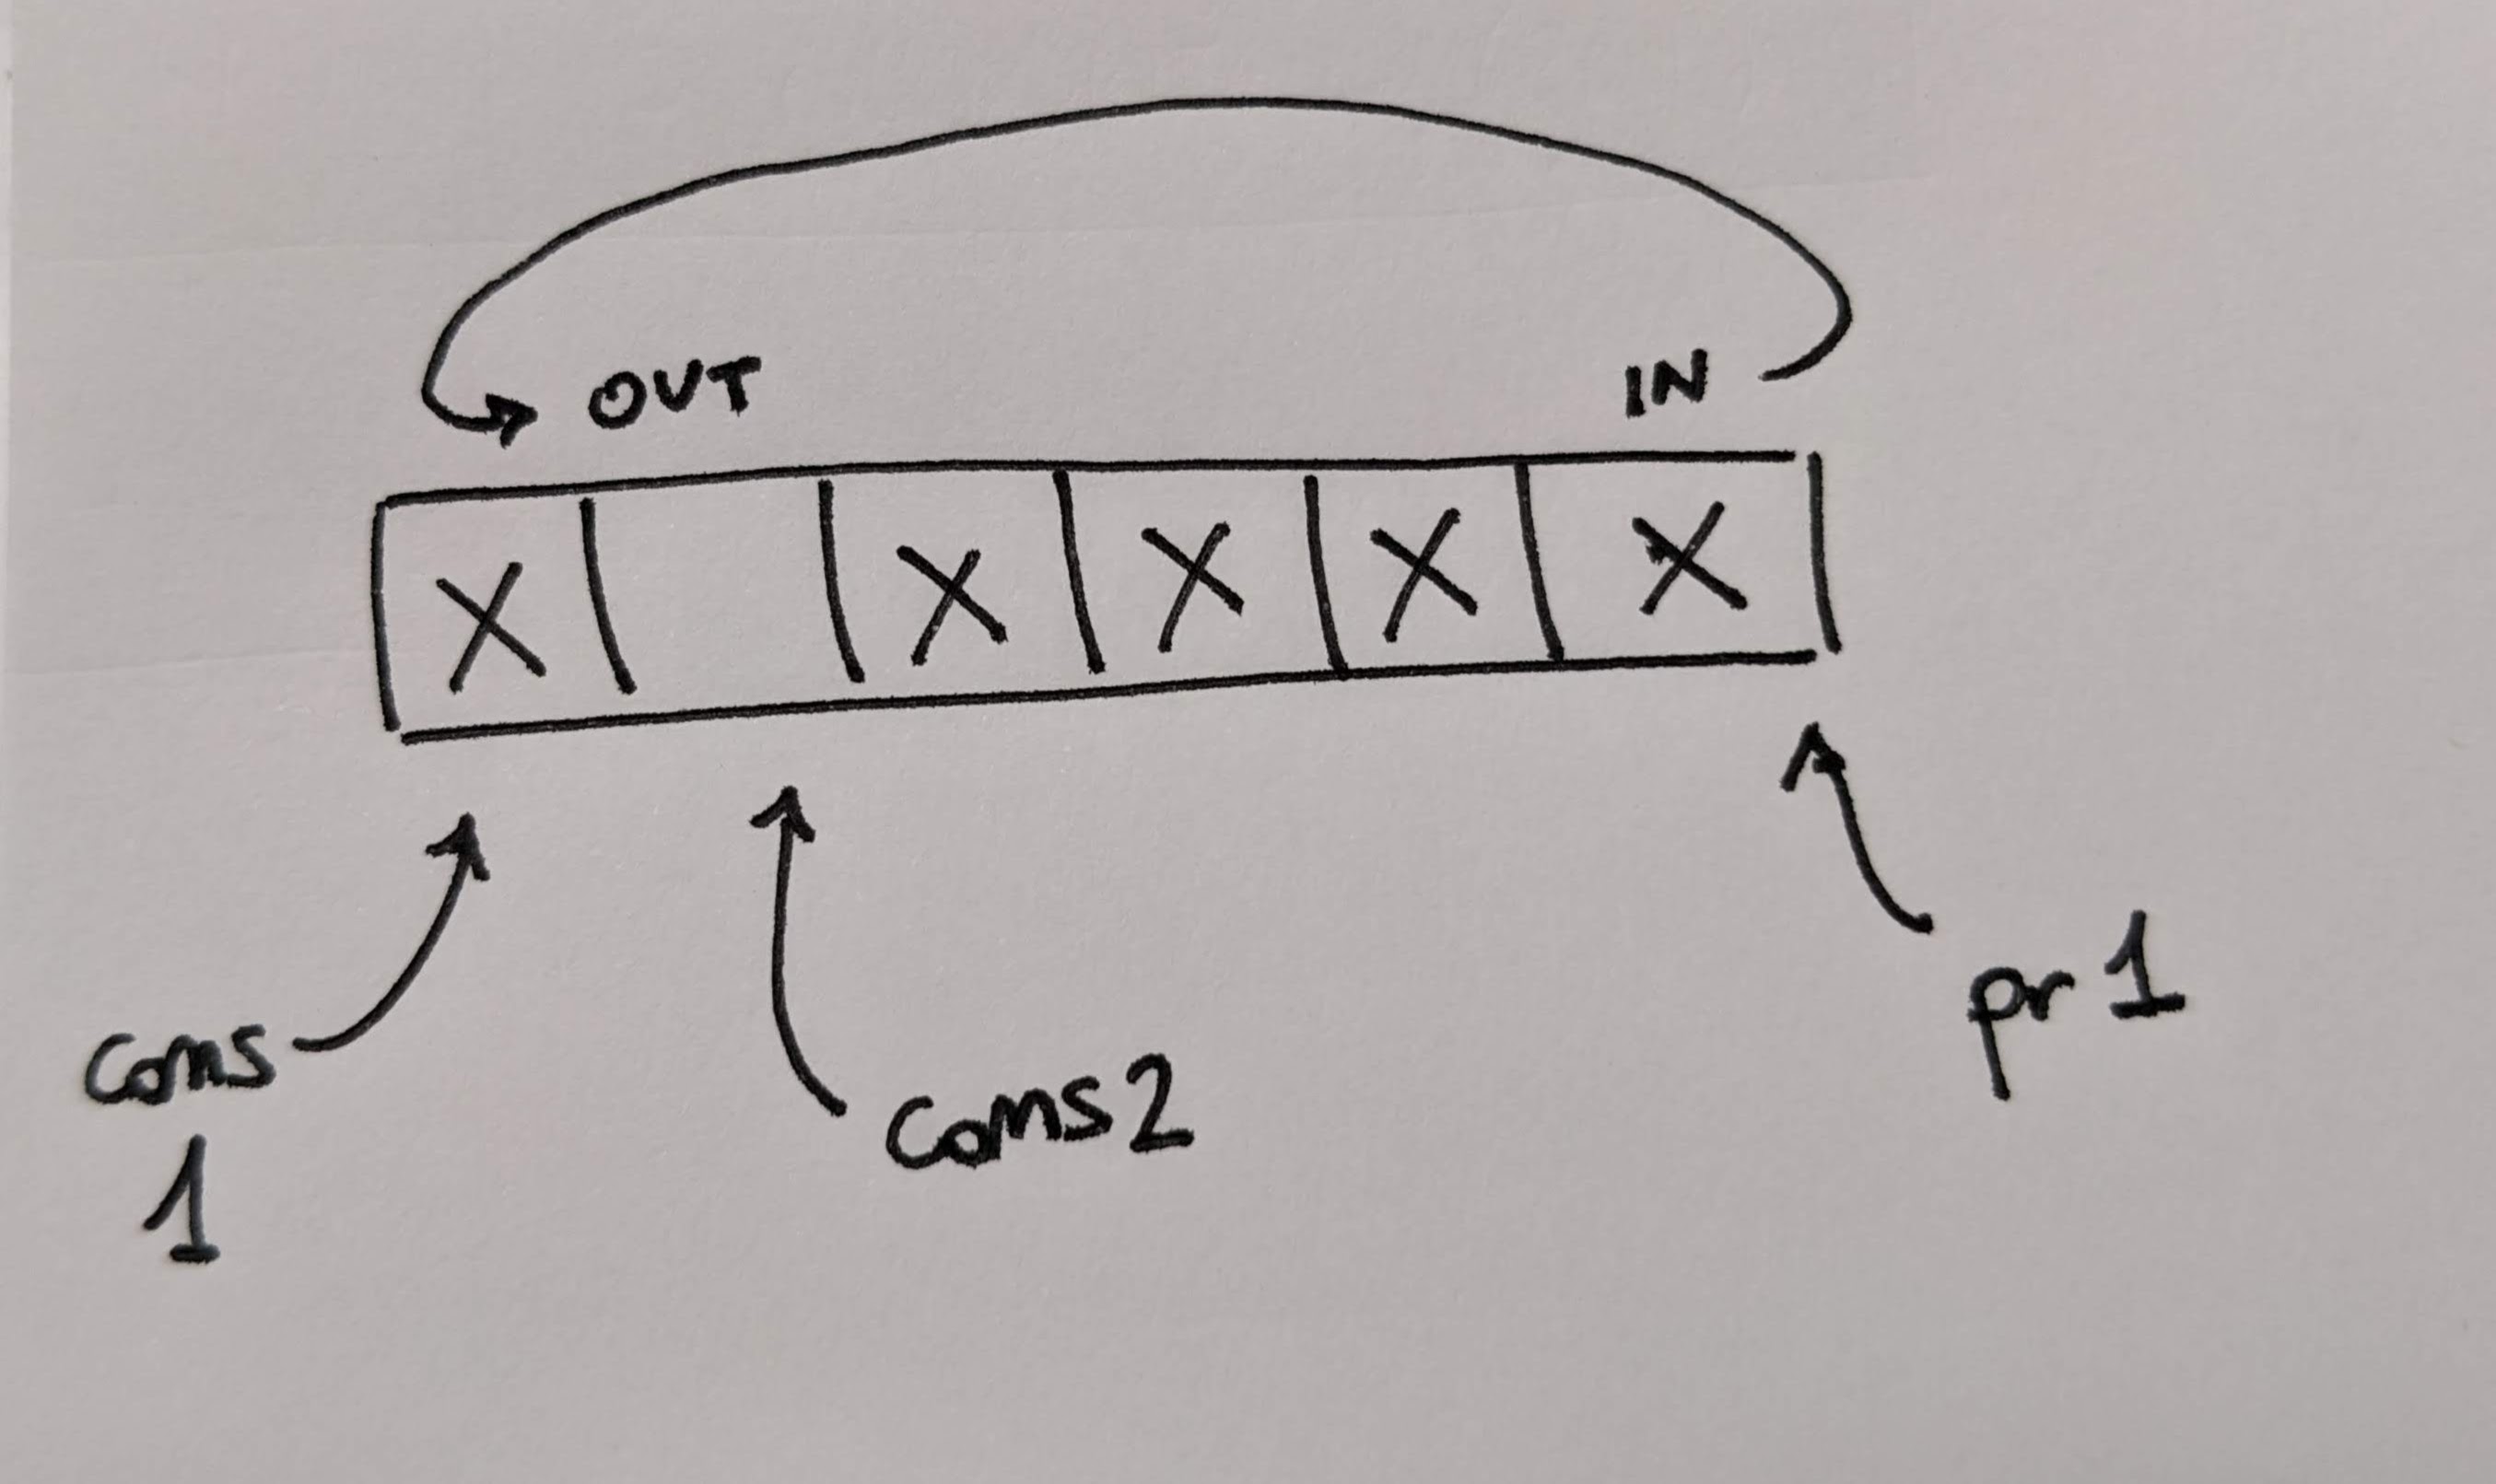 OUT IN
X X X X X
cons 1
cons 2
pr 1